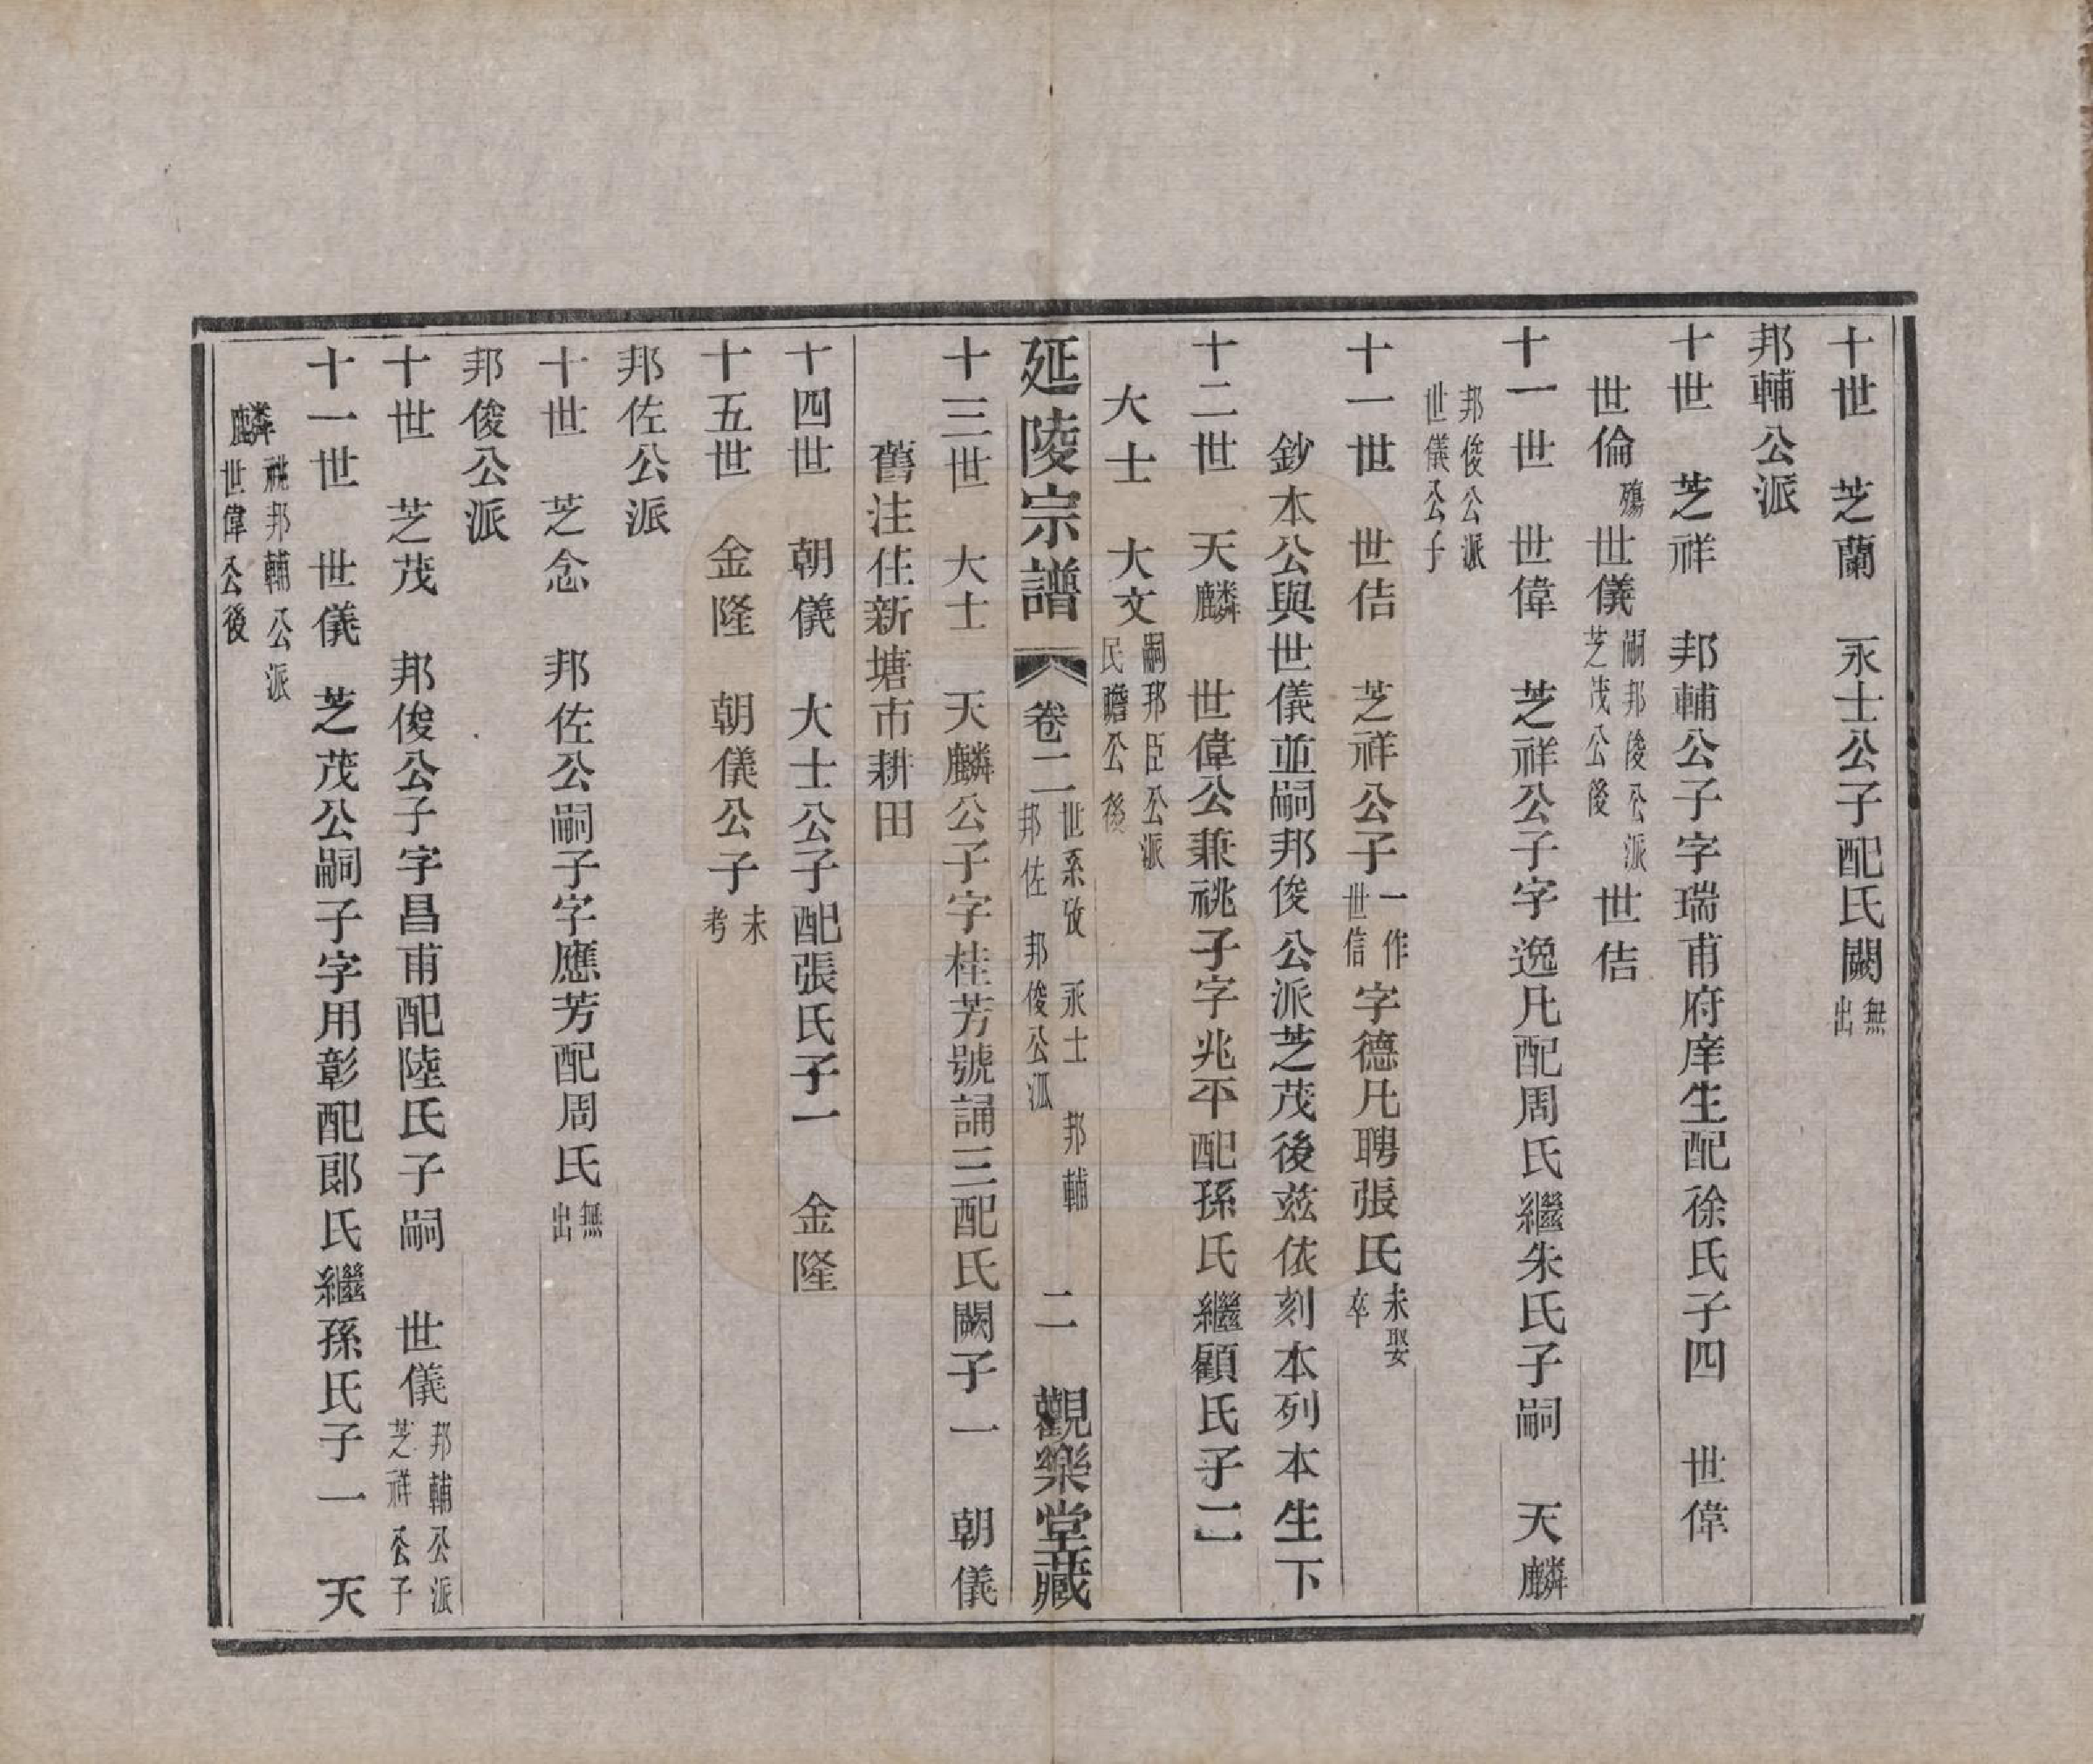 十世　芝蘭　永士公子配氏闕無出
邦輔公派
十世　芝祥　邦輔公子字瑞甫府庠生配徐氏子四　世偉
世倫殤　世儀嗣邦俊公派芝茂公後　世佶
十一世　世偉　芝祥公子字逸凡配周氏繼朱氏子嗣　天麟
邦俊公派世儀公子
十一世　世佶　芝祥公子一作世信字德凡聘張氏未娶卒
鈔本公與世儀並嗣邦俊公派芝茂後茲依刻本列本生下
十二世　天麟　世偉公兼祧子字兆平配孫氏繼顧氏子二
大士　大文嗣邦臣公派民瞻公後
延陵宗譜　卷二　世系攷　永士　邦輔　邦佐　邦俊公派　二　觀樂堂藏
十三世　大士　天麟公子字桂芳號誦三配氏闕子一　朝儀
舊注住新塘市耕田
十四世　朝儀　大士公子配張氏子一　金隆
十五世　金隆　朝儀公子未考
邦佐公派
十世　芝念　邦佐公嗣子字應芳配周氏無出
邦俊公派
十世　芝茂　邦俊公子字昌甫配陸氏子嗣　世儀邦輔公派芝祥公子
十一世　世儀　芝茂公嗣子字用彰配郎氏繼孫氏子一　天
麟祧邦輔公派世偉公後